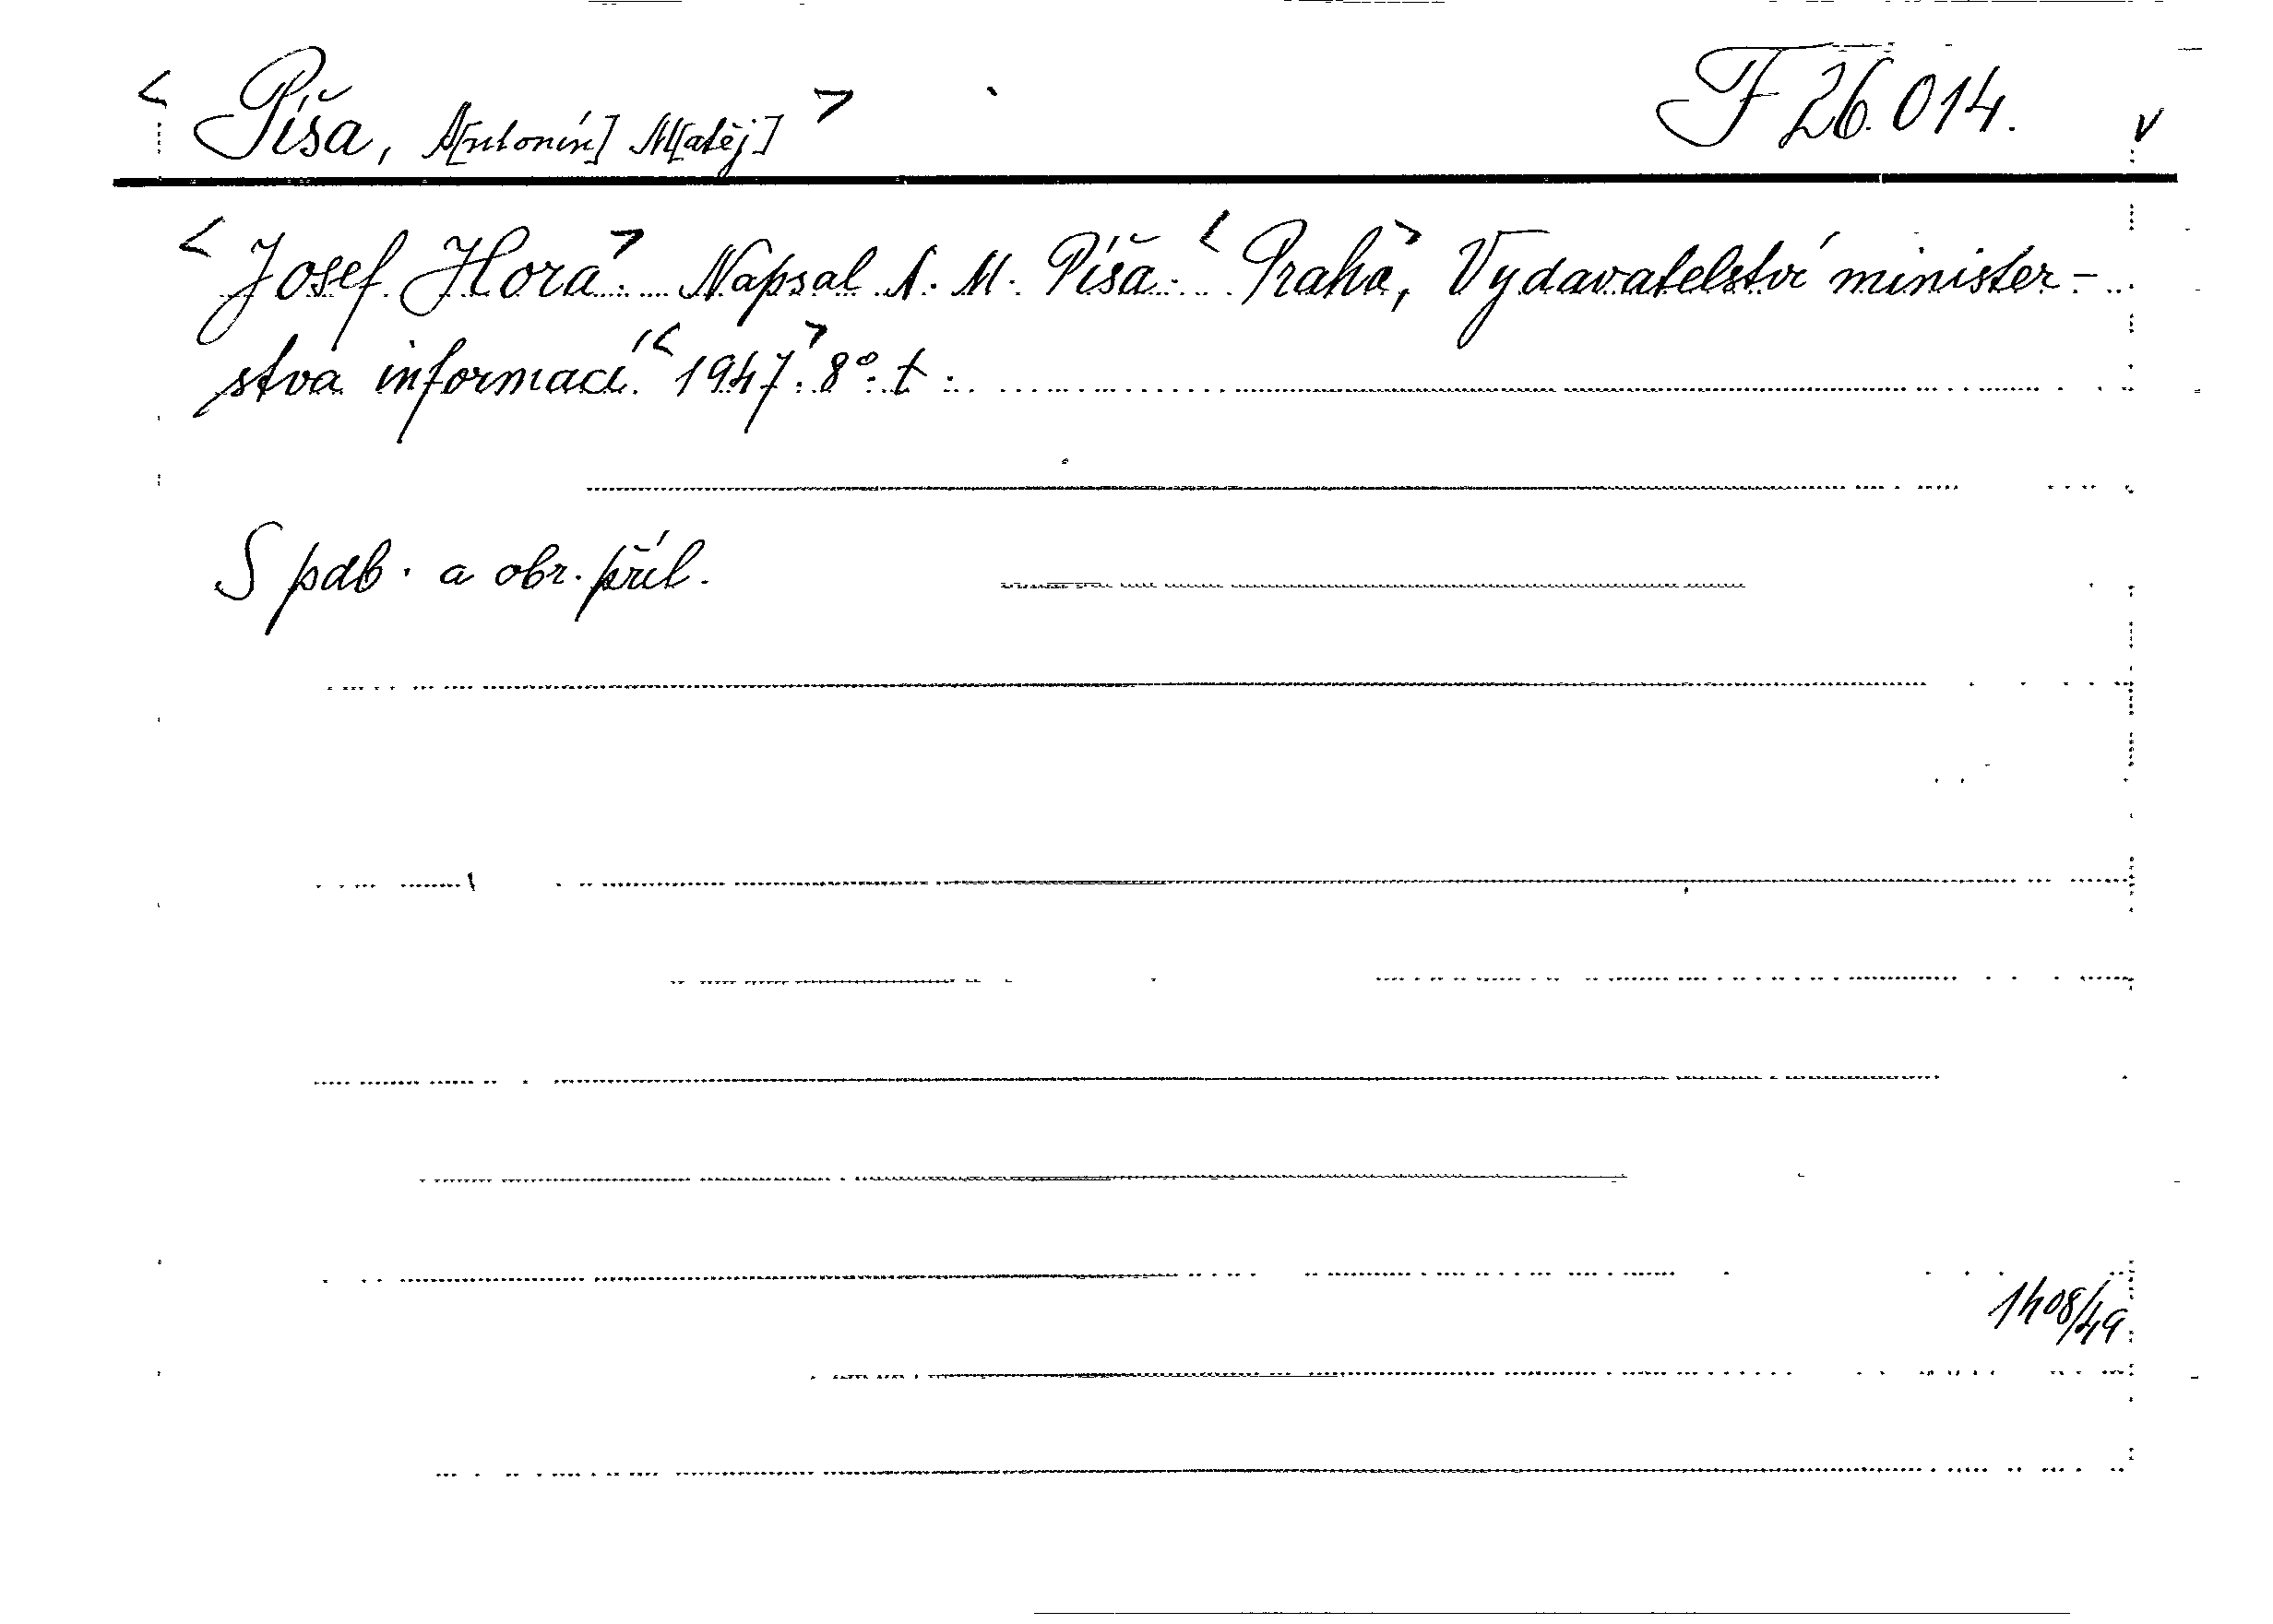 < Píša, A[ntonín] M[atěj] > F 26.014. v
< Josef Hora >. Napsal A. M. Píša. < Praha >, Vydavatelství minister-
stva informací. < 1947 >. 8°. t.
S pdb. a obr. příl.
1408/49